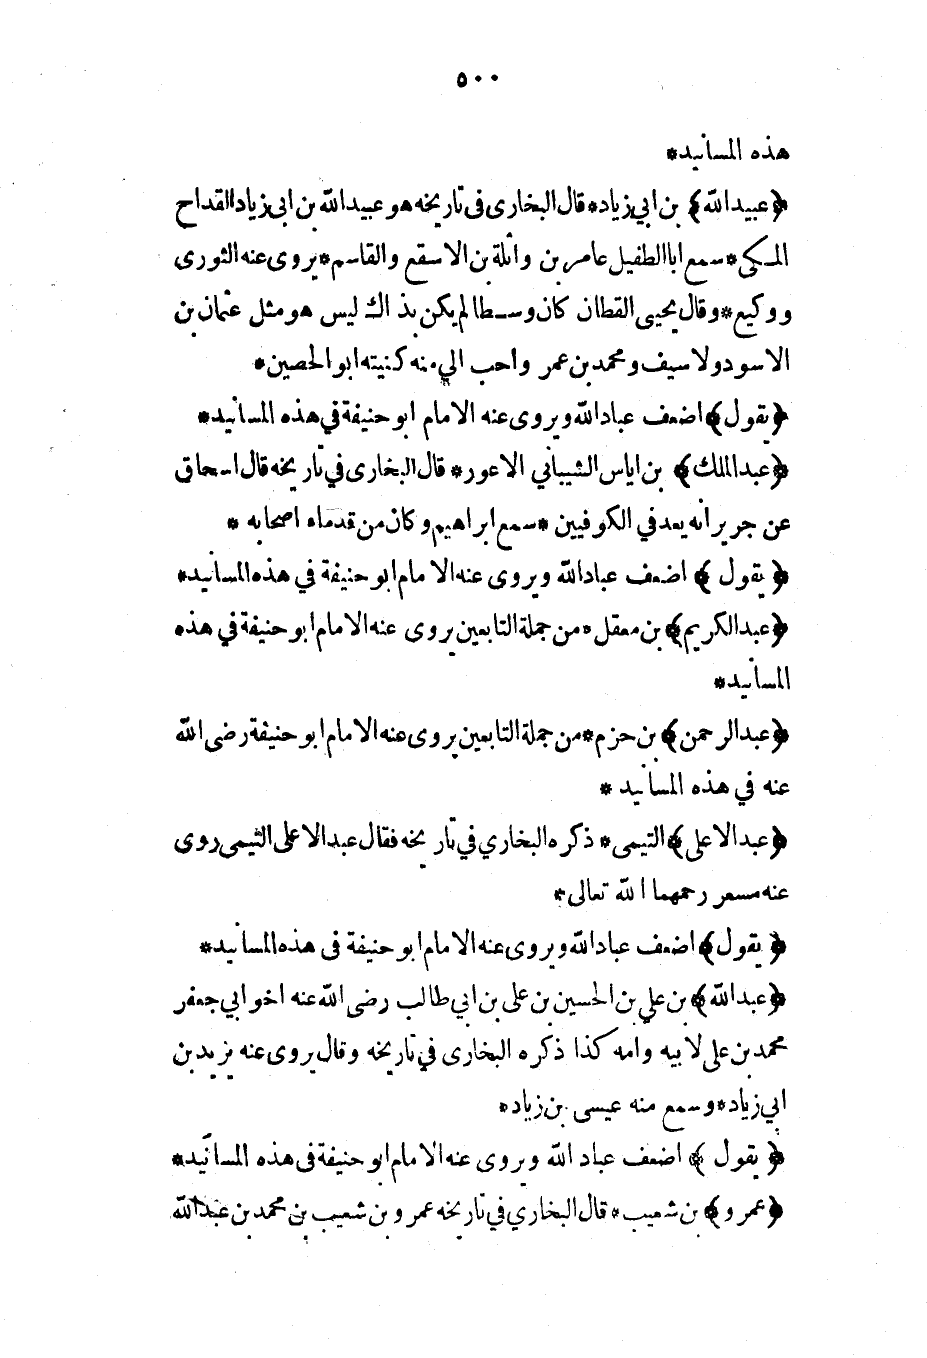 ٥٠٠
هذه المسانيد*
﴿عبيدالله﴾ بن ابي زياد*قال البخارى فى تاريخه هو عبيدالله بن ابى زياد القداح
المكى*سمع ابا الطفيل عامر بن واثلة بن الاسقع والقاسم*يروى عنه الثورى
ووكيع*وقال يحيى القطان كان وسطا لم يكن بذاك ليس هو مثل عثمان بن
الاسود ولا سيف ومحمد بن عمر واحب الي منه كنيته ابو الحصين*
﴿يقول﴾ اضعف عبادالله ويروى عنه الامام ابو حنيفة في هذه المسانيد*
﴿عبدالملك﴾ بن اياس الشيباني الاعور*قال البخارى في تاريخه قال اسحاق
عن جرير انه يعد في الكوفيين *سمع ابراهيم وكان من قدماء اصحابه *
﴿يقول﴾ اضعف عبادالله ويروى عنه الامام ابو حنيفة في هذه المسانيد*
﴿عبدالكريم﴾ بن معقل*من جملة التابعين يروى عنه الامام ابو حنيفة في هذه
المسانيد*
﴿عبدالرحمن﴾ بن حزم*من جملة التابعين يروى عنه الامام ابو حنيفة رضى الله
عنه في هذه المسانيد *
﴿عبدالاعلى﴾ التيمى* ذكره البخاري في تاريخه فقال عبدالاعلى التيمى روى
عنه مسعر رحمهما الله تعالى*
﴿يقول﴾ اضعف عبادالله ويروى عنه الامام ابو حنيفة فى هذه المسانيد*
﴿عبدالله﴾ بن علي بن الحسين بن على بن ابي طالب رضى الله عنه اخو ابي جعفر
محمد بن على لابيه وامه كذا ذكره البخارى في تاريخه وقال يروى عنه يزيد بن
ابي زياد*وسمع منه عيسى بن زياد*
﴿يقول﴾ اضعف عباد الله ويروى عنه الامام ابو حنيفة فى هذه المسانيد*
﴿عمرو﴾ بن شعيب*قال البخاري في تاريخه عمرو بن شعيب بن محمد بن عبدالله